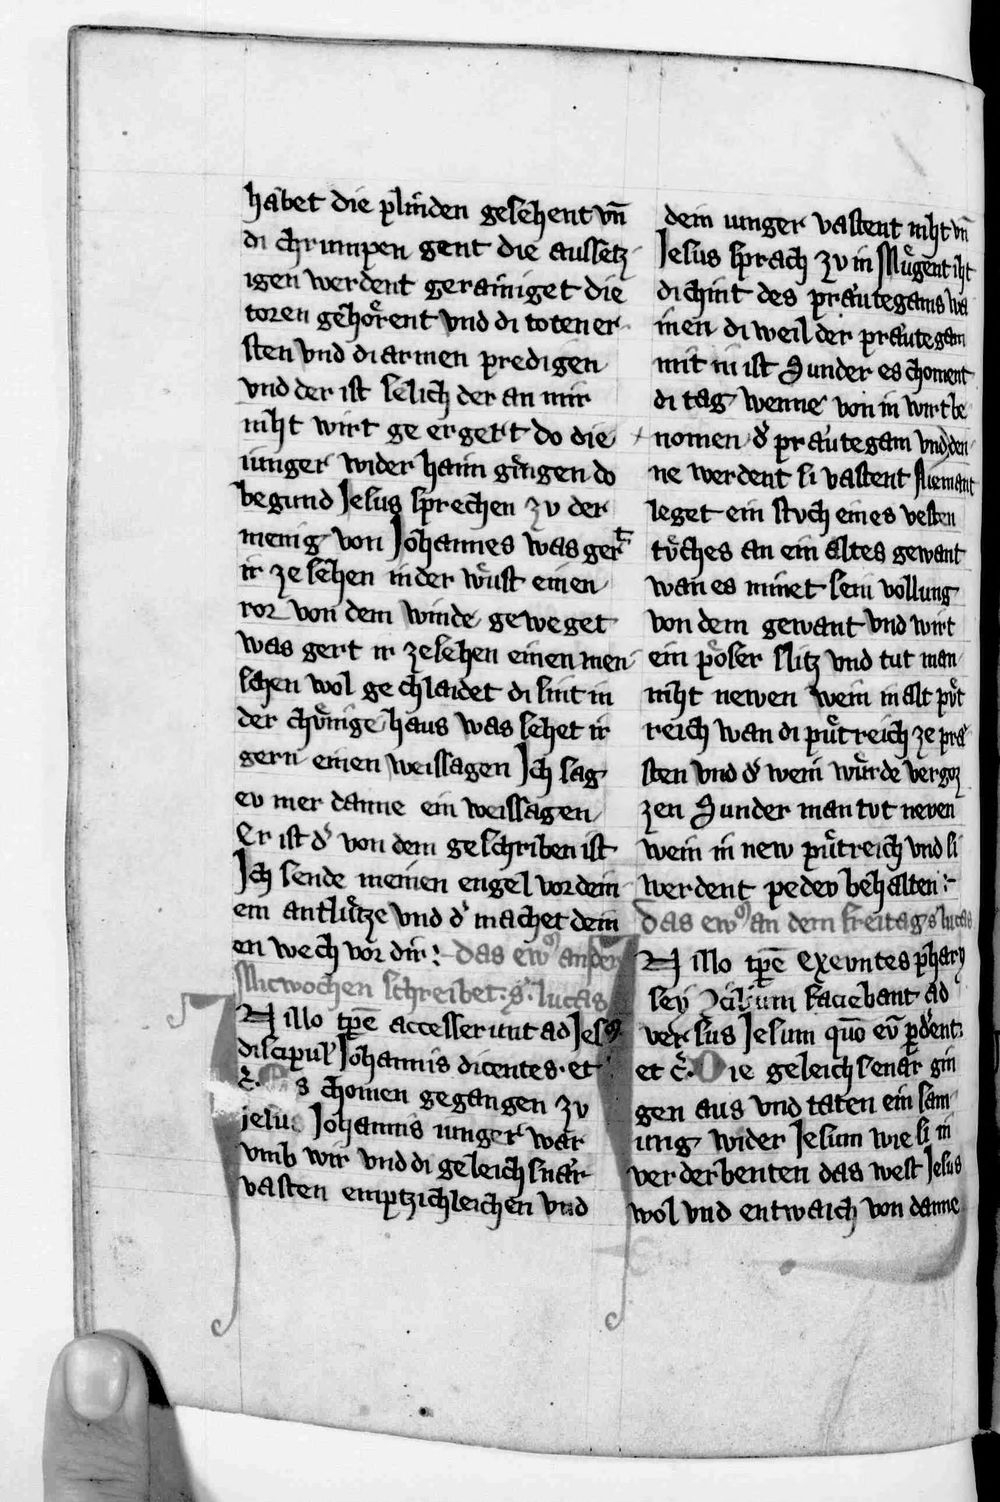 habet die plinden gesehent vn̄
di chrumpen gent die aussetz
igen werdent gerainiget die
toren gehoͤrent vnd di toten er
sten vnd di armen predigen
vnd der ist selich der an mir
niht wirt ge ergert do die
iunger wider haim giͤngen do
begund Jesus sprechen zv der
menig von Johannes was gert
ir ze sehen in der wuͤst einen
ror von dem winde geweget
was gert ir ze sehen einen men
schen wol ge chlaidet di sint in
der chuͤnige haus was sehet ir
gern einen weissagen Ich sag
ev mer danne ein weissagen
Er ist d' von dem geschriben ist
Ich sende meinen engel vor dein
em antluͤtze vnd d' machet dein
en wech vor dir :- das ew⁹ an der
Micwochen schreibet · s' · lucas
IN illo tp̄e accesserunt ad Jes⁹
discipul' Johannis dicentes · et
c̄ · Es chomen gegangen zv
jesus Johannis iunger war
vmb wir vnd di geleichsnar
vasten emptzichleichen vnd
dein iunger vastent niht vn̄
Jesus sprach zv in Muͤgent iht
di chint des prautegams wa
inen di weil der prautegam
mit in ist Sunder es choment
di tag wenne von in wirt be
nomen d' prautegam vnd den
ne werdent si vastent Niemant
leget ein stvch eines vesten
tuͤches an ein altes gewant
wan es minet sein vollung
von dem gewant vnd wirt
ein poͤser slitz vnd tut man
niht newen wein in alt puͤt
reich wan di puͤtreich ze pra
sten vnd d' wein wuͤrde vergoz
zen Sunder man tvt neven
wein in new puͤtreich vnd si
werdent pedev behalten :-
das ew⁹ an dem freitag s' lucas
IN illo tp̄e exevntes phary
sey Ɔcilium faciebant ad
versus Jesum quō ev̄ p̱d'ent.
et c̄ · Die geleichsenar gin
gen aus vnd taten ein sam
ung wider Jesum wie si in
verderbenten das west Jesus
wol vnd entwaich von danne